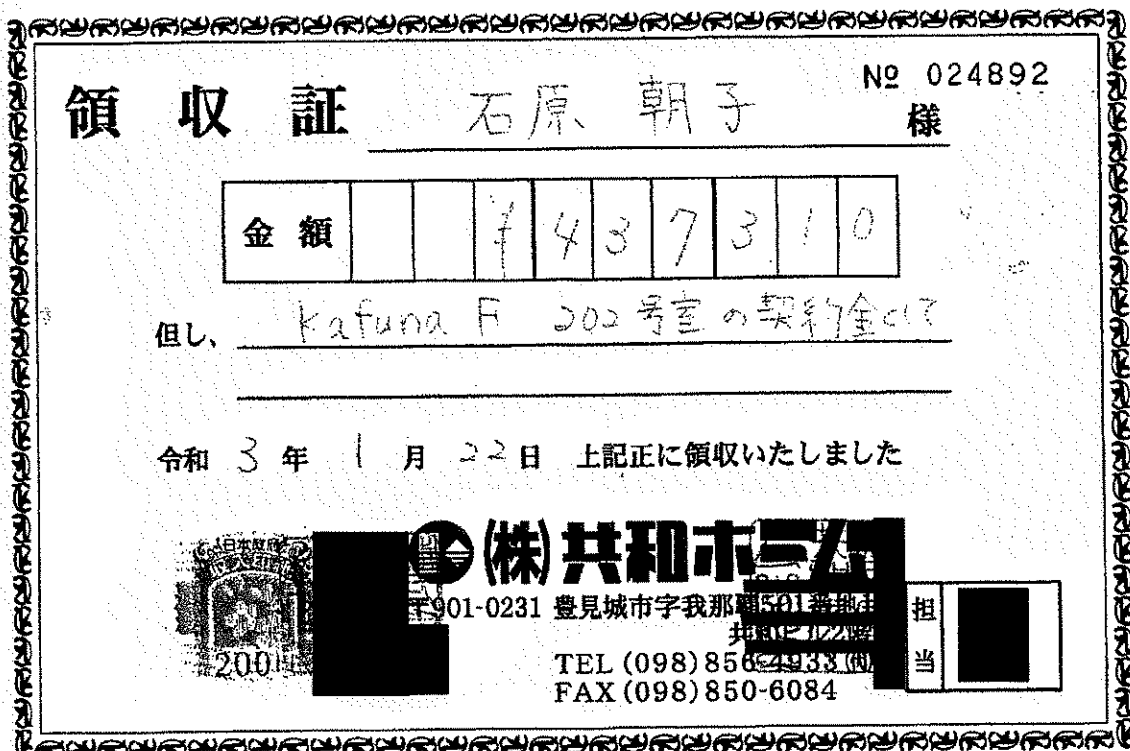 № 024892
領収証 石原 朝子 様
金額 ¥437310
但し、 Kafuna F 202号室の契約金として
令和 3 年 1 月 22 日 上記正に領収いたしました
日本政府
200
(株)共和ホーム
〒901-0231 豊見城市字我那覇501番地
TEL (098) 856-4933
FAX (098) 850-6084
担当